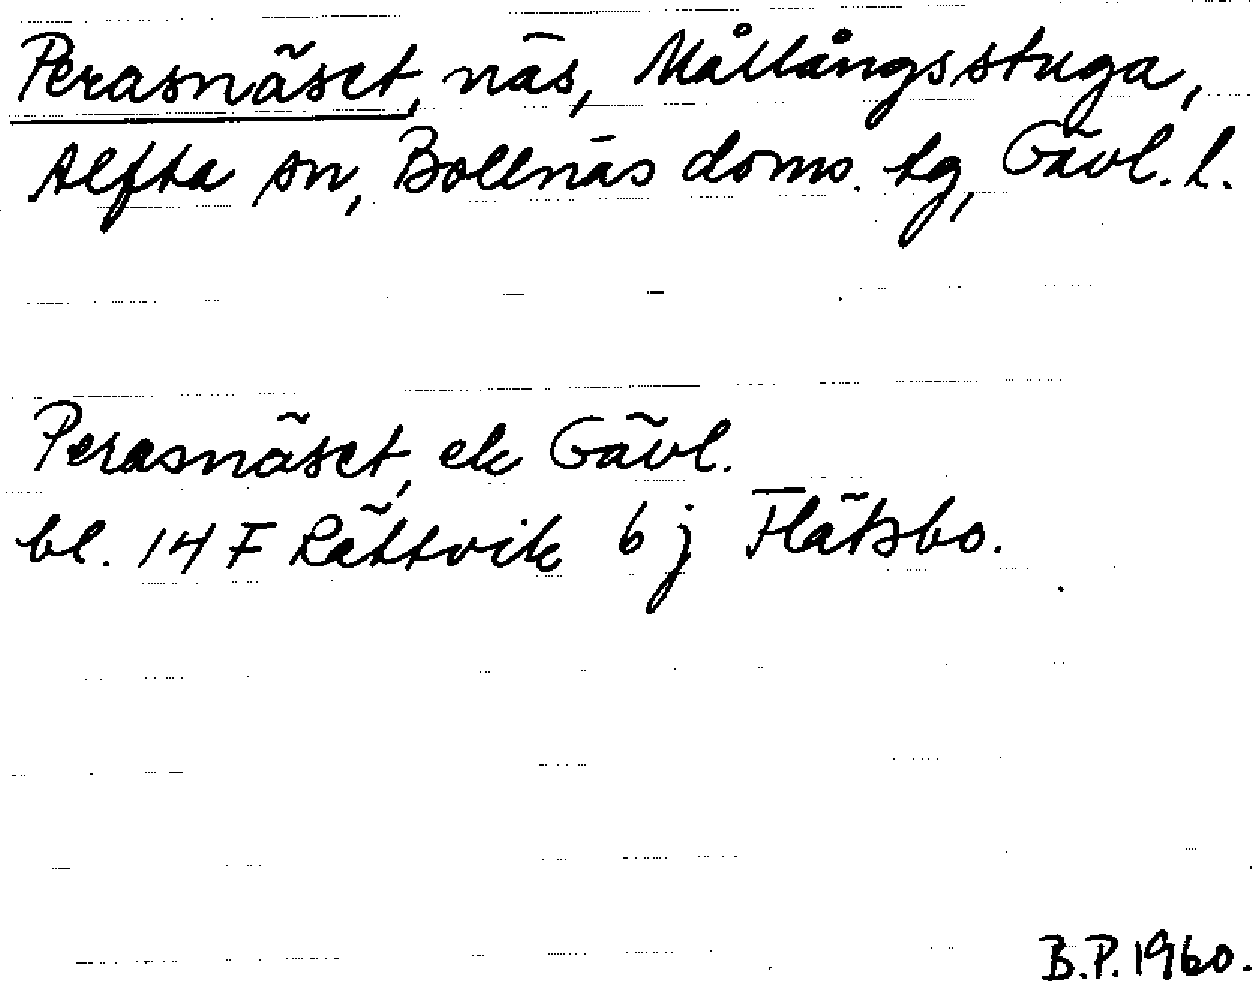 Perasnäset, näs, Mållångsstuga,
Alfta sn, Bollnäs doms. tg, Gävl. l.
Perasnäset, ek Gävl.
bl. 14 F Rättvik 6 j Flätsbo.
B.P. 1960.